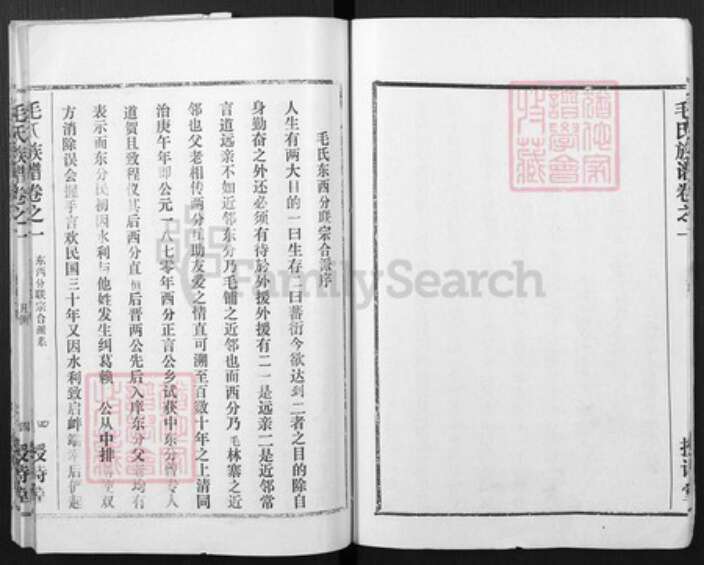 毛氏族谱卷之一
授诗堂
毛氏东西分联宗合派序
人生有两大目的一曰生存二曰蕃衍今欲达到二者之目的除自
身勤奋之外还必须有待於外援外援有二一是远亲二是近邻常
言道远亲不如近邻东分乃毛铺之近邻也而西分乃毛林寨之近
邻也父老相传两分互助友爱之情直可溯至百数十年之上清同
治庚午年即公元一八七零年西分正言公乡试获中东分曾专人
道贺且致程仪其后西分直恒后晋两公先后入庠东分父老均有
表示而东分民初因水利与他姓发生纠葛赖 公从中排 双
方消除误会握手言欢民国三十年又因水利致启衅端幸后伊起
毛氏族谱卷之一
东西分联宗合派系
四
授诗堂
毛氏族谱卷之一
凡例
四
授诗堂
FamilySearch